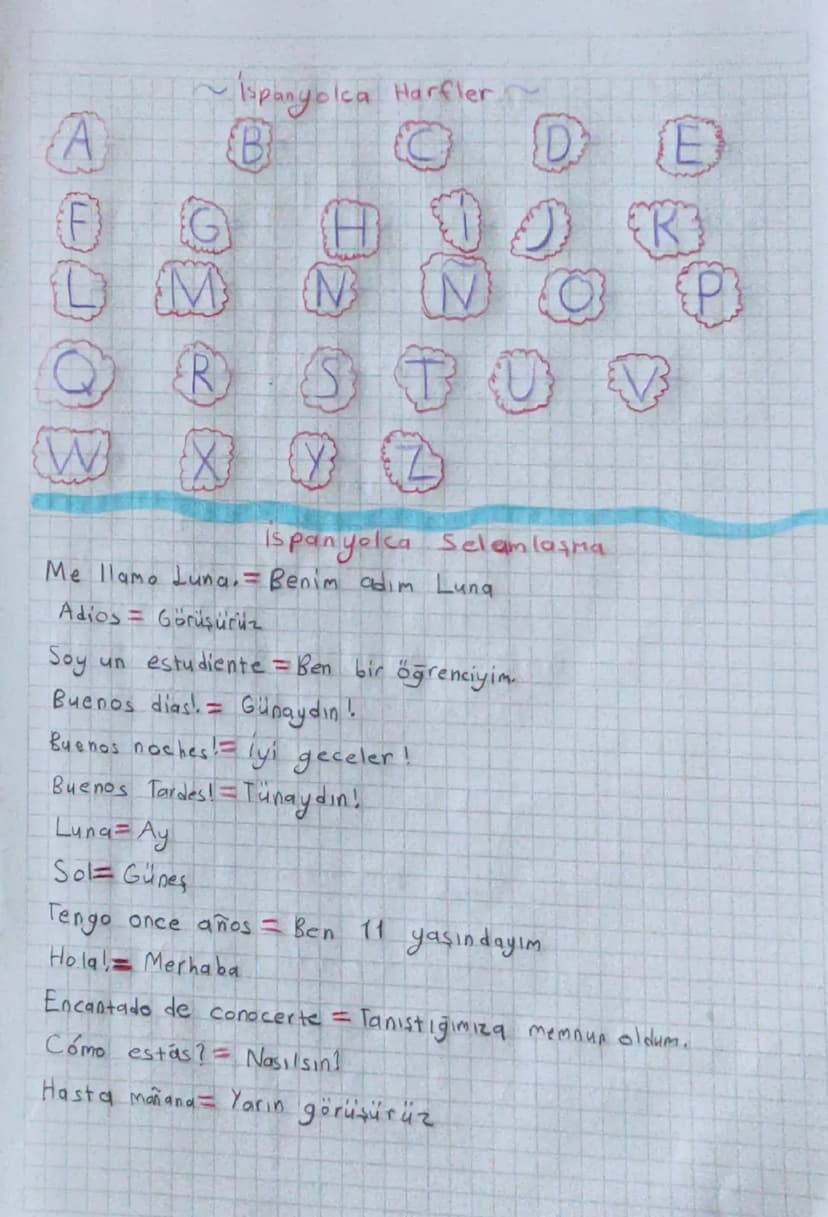 ~ İspanyolca Harfler ~
A B C D E
F G H İ J K
L M N Ñ O P
Q R S T U V
W X Y Z
İspanyolca Selamlaşma
Me llamo Luna. = Benim adım Luna
Adios = Görüşürüz
Soy un estudiente = Ben bir öğrenciyim.
Buenos dias! = Günaydın!
Buenos noches! = İyi geceler!
Buenos Tardes! = Tünaydın!
Luna = Ay
Sol = Güneş
Tengo once años = Ben 11 yaşındayım
Hola! = Merhaba
Encantado de conocerte = Tanıstığımıza memnun oldum.
Cómo estás? = Nasılsın?
Hasta mañana = Yarın görüşürüz